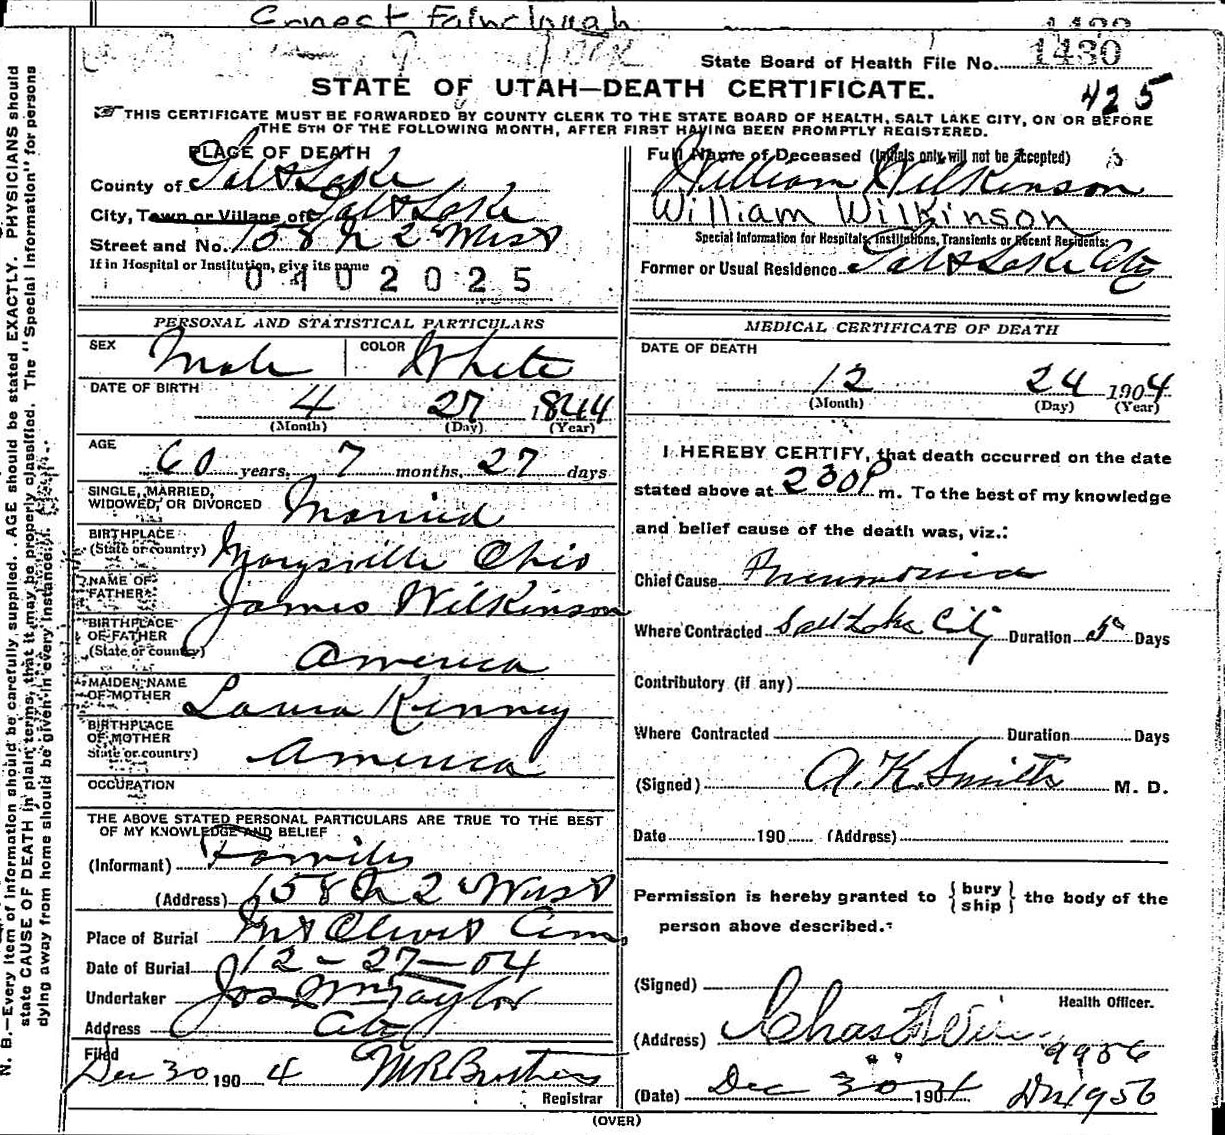 Ernest Fairclough
1430
State Board of Health File No. 1430
STATE OF UTAH—DEATH CERTIFICATE.
425
☞THIS CERTIFICATE MUST BE FORWARDED BY COUNTY CLERK TO THE STATE BOARD OF HEALTH, SALT LAKE CITY, ON OR BEFORE
THE 5TH OF THE FOLLOWING MONTH, AFTER FIRST HAVING BEEN PROMPTLY REGISTERED.
PLACE OF DEATH
County of Salt Lake
City, Town or Village of Salt Lake
Street and No. 158 N 2 West
If in Hospital or Institution, give its name
0402025
Full Name of Deceased (Initials only will not be accepted)
William Wilkinson
William Wilkinson
Special Information for Hospitals, Institutions, Transients or Recent Residents:
Former or Usual Residence Salt Lake City
PERSONAL AND STATISTICAL PARTICULARS
SEX Male COLOR White
DATE OF BIRTH
4 27 1844
(Month) (Day) (Year)
AGE
60 years, 7 months, 27 days
SINGLE, MARRIED,
WIDOWED, OR DIVORCED Married
BIRTHPLACE
(State or country) Marysville Ohio
NAME OF
FATHER James Wilkinson
BIRTHPLACE
OF FATHER
(State or country) America
MAIDEN NAME
OF MOTHER Laura Kenney
BIRTHPLACE
OF MOTHER
State or country) America
OCCUPATION
THE ABOVE STATED PERSONAL PARTICULARS ARE TRUE TO THE BEST
OF MY KNOWLEDGE AND BELIEF
(Informant) Family
(Address) 158 N 2 West
Place of Burial Mt Olivet Cem
Date of Burial 12-27-04
Undertaker Jos Wm Taylor
Address City
Filed
Dec 30 190 4 M R Brothers
Registrar
MEDICAL CERTIFICATE OF DEATH
DATE OF DEATH
12 24 1904
(Month) (Day) (Year)
I HEREBY CERTIFY, that death occurred on the date
stated above at 230 P m. To the best of my knowledge
and belief cause of the death was, viz.:
Chief Cause Pneumonia
Where Contracted Salt Lake City Duration 5 Days
Contributory (if any)
Where Contracted Duration Days
(Signed) A. K. Smith M. D.
Date 190 (Address)
Permission is hereby granted to { bury ship } the body of the
person above described.
(Signed)
Health Officer.
(Address) Chas
9956
(Date) Dec 30 1904
(OVER)
N. B.—Every item of information should be carefully supplied. AGE should be stated EXACTLY. PHYSICIANS should
state CAUSE OF DEATH in plain terms, that it may be properly classified. The "Special Information" for persons
dying away from home should be given in every instance.